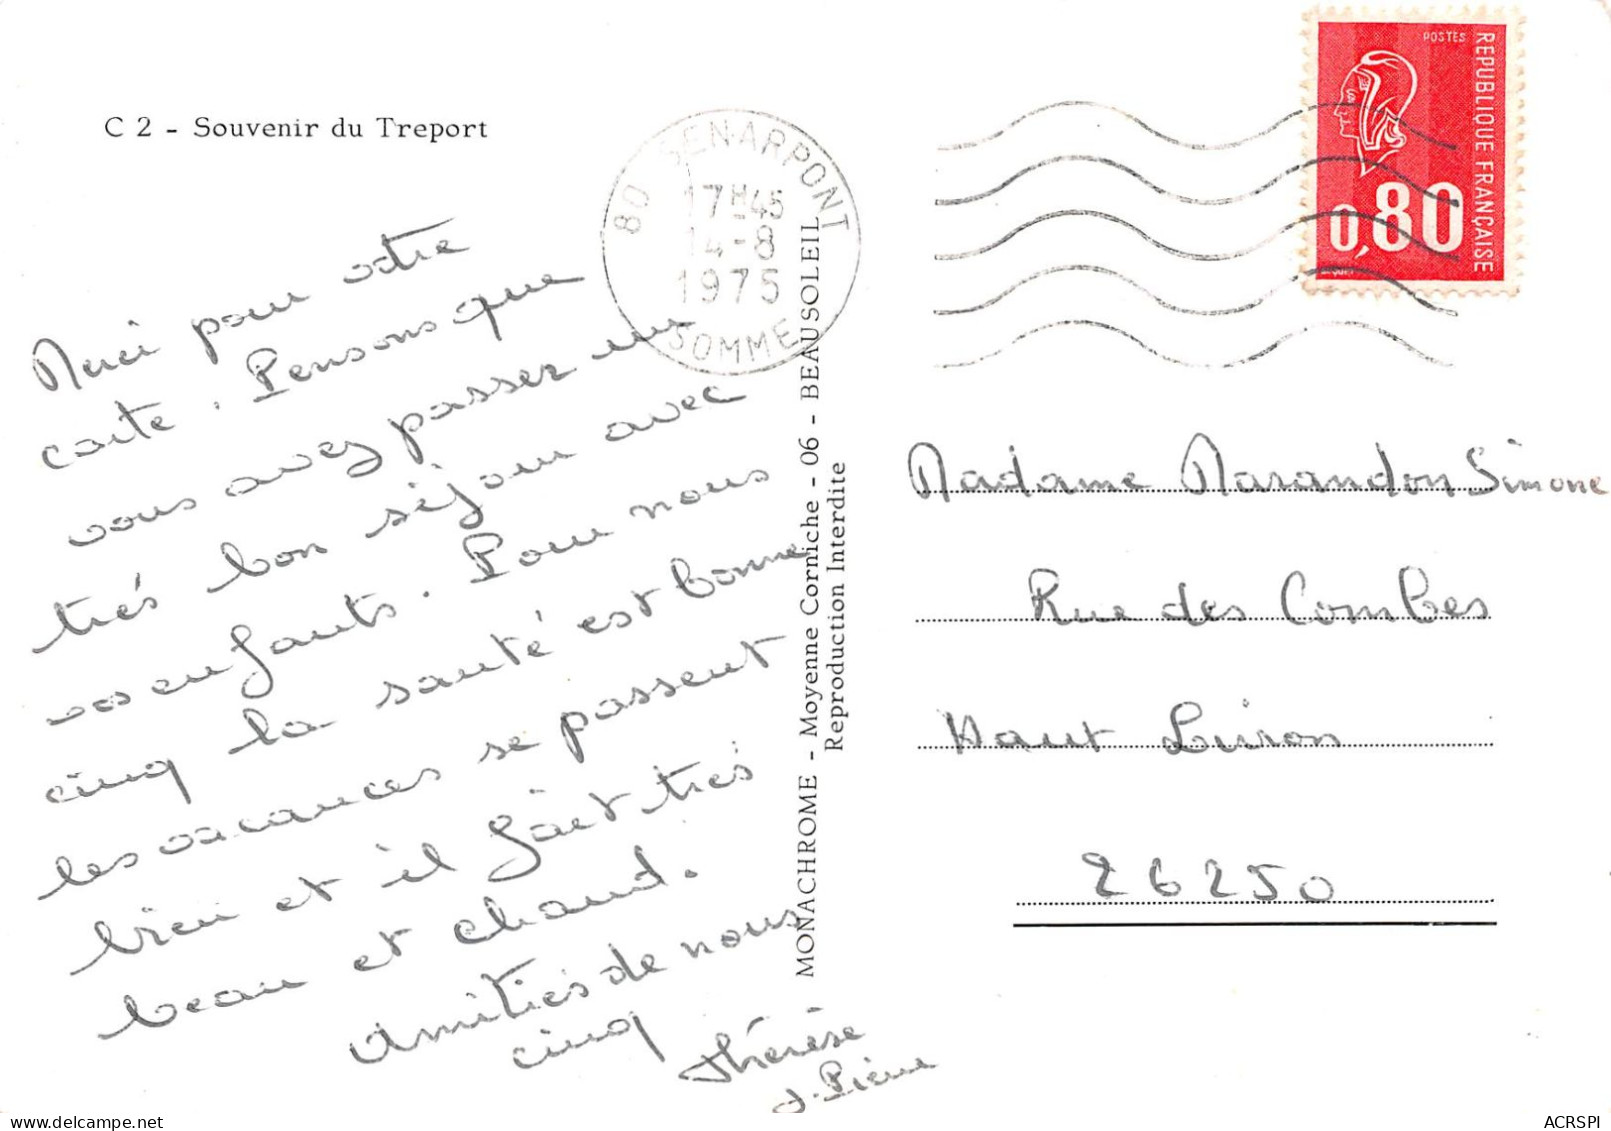 C 2 - Souvenir du Treport
Merci pour votre
carte. Pensons que
vous avez passer un
très bon séjour avec
vos enfants. Pour nous
cinq la santé est bonne
les vacances se passent
bien et il fait très
beau et chaud.
Amitiés de nous
cinq
Thérèse
J. Pierre
80 SENARPONT
17H45
14-8
1975
SOMME
MONACHROME - Moyenne Corniche - 06 - BEAUSOLEIL
Reproduction Interdite
POSTES
REPUBLIQUE FRANÇAISE
0,80
Madame Marandon Simone
Rue des Combes
Haut Livron
26250
ACRSPI